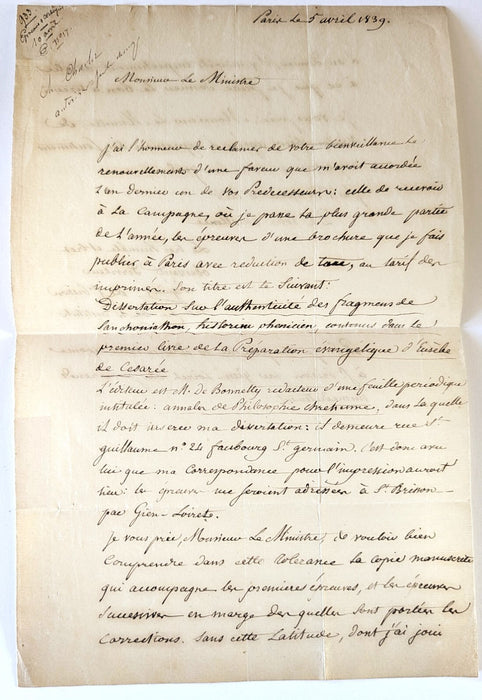 133
Epreuves
10 avril
Paris Le 5 avril 1839.
Monsieur Le Ministre
j'ai l'honneur de reclamer de votre bienveillance le
renouvellement d'une faveur que m'avoit accordée
l'an dernier un de vos Predecesseurs: celle de recevoir
à La Campagne, où je passe La plus grande partie
de L'année, les épreuves d'une brochure que je fais
publier à Paris avec reduction de taxe, au tarif des
imprimés. Son titre est le Suivant:
Dissertation sur l'authenticité des fragmens de
Sanchoniathon, historien phenicien, contenus dans le
premier livre de La Préparation évangelique d'Eusèbe
de Cesarée
L'éditeur est M. de Bonnetty redacteur d'une feuille periodique
intitulée: annales de Philosophie chretienne, dans la quelle
il doit inserer ma dissertation: il demeure rue St
guillaume n° 24 faubourg St germain. C'est donc avec
lui que ma correspondance pour l'impression auroit
lieu: les epreuves me seroient adressées à St Brisson
par Gien - Loiret.
Je vous prie, Monsieur Le Ministre, de vouloir bien
Comprendre dans cette tolerance La copie manuscrite
qui accompagne les premieres épreuves, et les épreuves
successives en marge des quelles sont portées les
corrections. Sans cette Latitude, dont j'ai joui